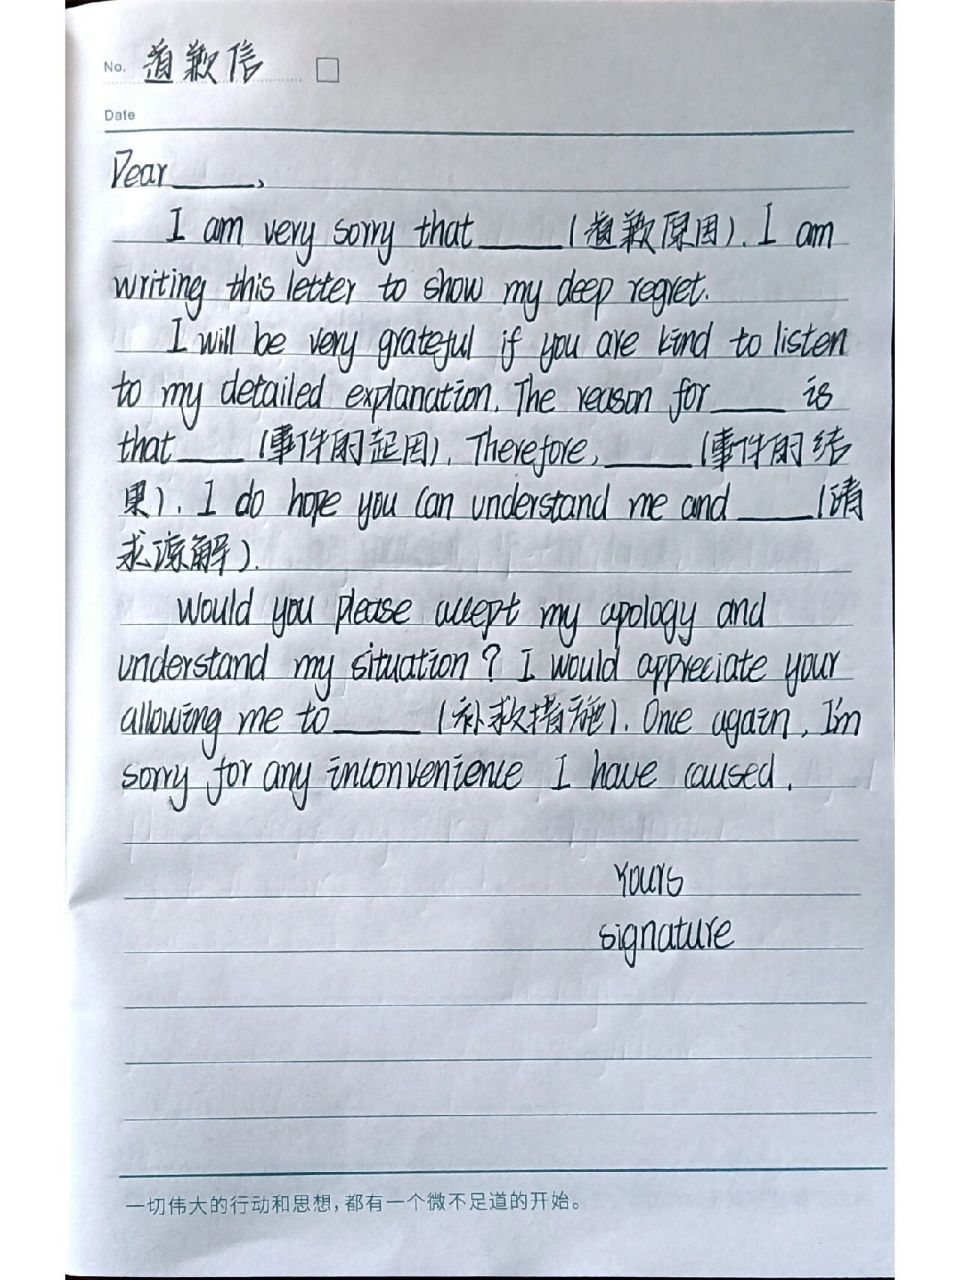 No. 道歉信
Date
Dear_____,
I am very sorry that_____(道歉原因). I am
writing this letter to show my deep regret.
I will be very grateful if you are kind to listen
to my detailed explanation. The reason for____ is
that____ (事件的起因). Therefore, _____(事件的结
果). I do hope you can understand me and _____(请
求谅解).
Would you please accept my apology and
understand my situation? I would appreciate your
allowing me to_____ (补救措施). Once again, I'm
sorry for any inconvenience I have caused.
Yours
signature
一切伟大的行动和思想,都有一个微不足道的开始。